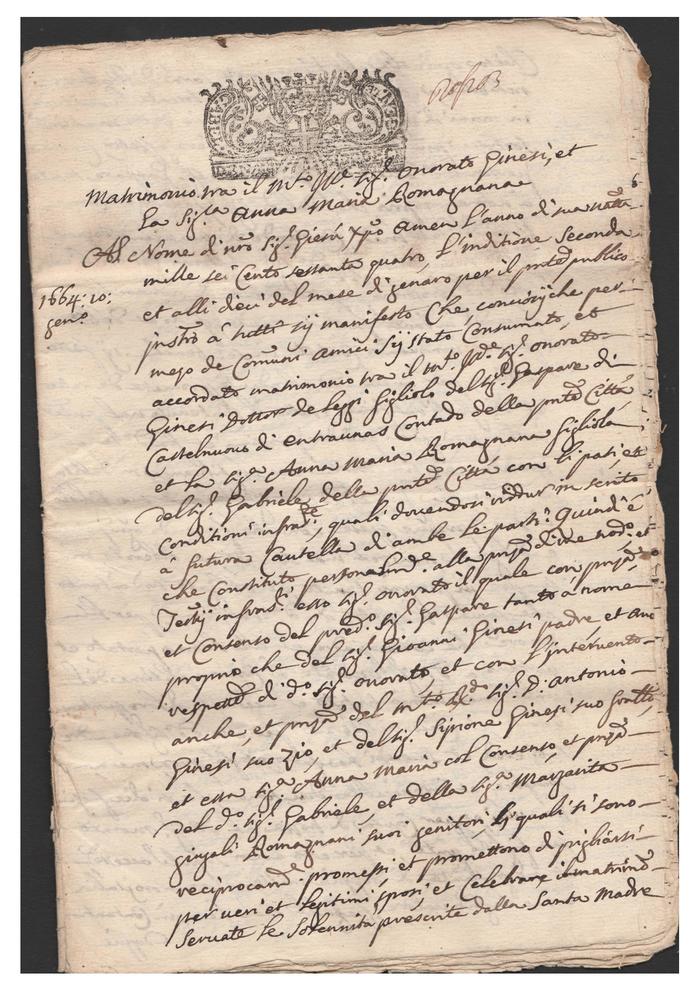 Matrimonio tra il m.to Ill.e sig.r onorato Ginesi, et
La sig.ra Anna Maria Romagnana
Al Nome di nro sig.r Giesù Xpo Amen L'anno di sua natta
mille sei Cento sessanta quatro, L'inditione Seconda
1664: 10:
gen.o
et alli dieci del mese di genaro per il pnte publico
instro à tutti sij manifesto Che conciosij che per
mezo de Comuni Amici sij stato Consumato, et
accordato matrimonio tra il m.to Ill.e sig.r onorato
Ginesi dottor de leggi figliolo del sig.r Gaspare di
Castelnuovo di entraunas Contado della pnte Città
et la sig.ra Anna Maria Romagnana figliola
del sig.r Gabriele della pnte Città con li pati, et
Conditioni infratte, quali dovendosi riddur in scrito
à futura Cautella di ambe le parti. Quindi è
che Constituto personalmte alla pnza di me nodo et
Testij infrasti esso sig.r onorato il quale con pnza
et Consenso del predo sig.r Gaspare tanto à nome
proprio che del sig.r Gioanni Ginesi padre et avo
respette di do sig.r onorato et con l'intervento
anche, et pnza del m.to Rdo sig.r D. antonio
Ginesi suo Zio, et del sig.r Sipione Ginesi suo fratto
et essa sig.ra Anna Maria col Consenso et pnza
del do sig.r Gabriele, et della sig.ra Margarita
giugali Romagnani suoi genitori, li quali si sono
reciprocamte promessi, et promettono di pigliarsi
per veri et legitimi sposi, et Celebrare il matrimo
servate le solennità prescrite dalla Santa Madre